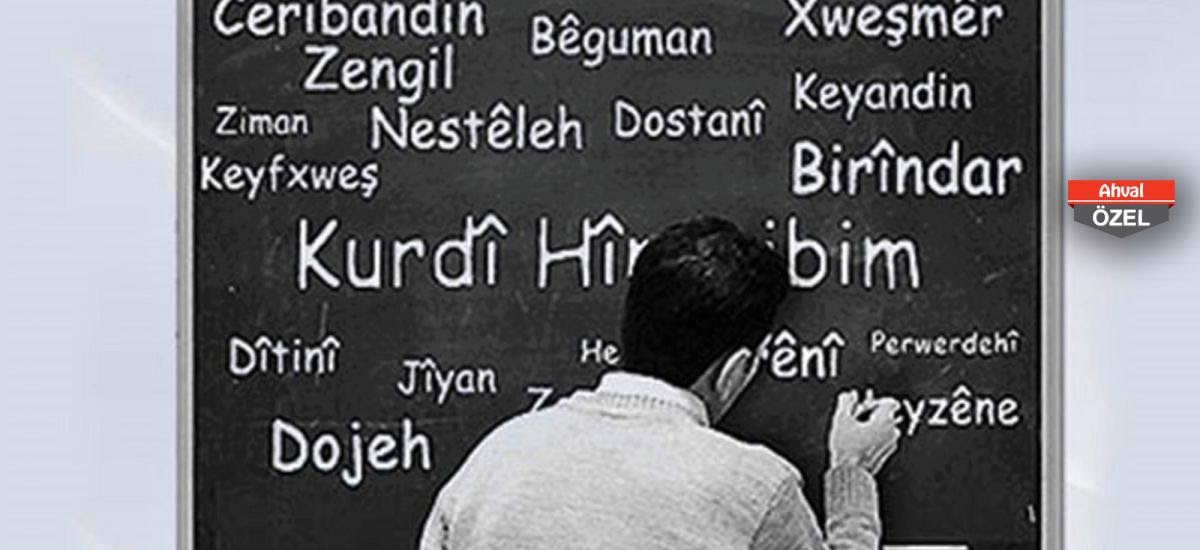 Ceribandin Bêguman Xweşmêr
Zengil
Keyandin
Ziman Nestêleh Dostanî
Keyfxweş Birîndar
Kurdî
Dîtinî Perwerdehî
Jîyan
Dojeh
Ahval
ÖZEL